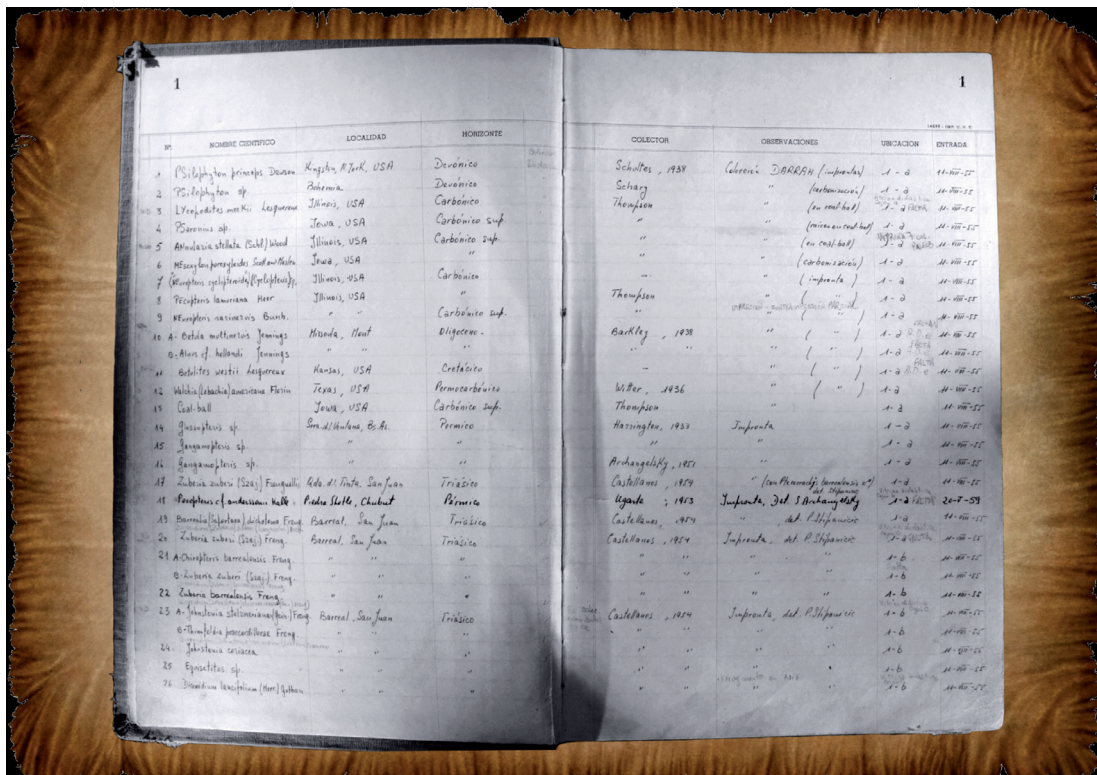 1 1
Nº NOMBRE CIENTIFICO LOCALIDAD HORIZONTE COLECTOR OBSERVACIONES UBICACION ENTRADA
1 Psilophyton princeps Dawson Kingston, N.York, USA Devónico Schultes, 1938 Colección DARRAH (improntas) 1-a 11-VIII-55
2 Psilophyton sp. Bohemia Devónico Schary " (carbonización) 1-a 11-VIII-55
3 Lycopodites meekii Lesquereux Illinois, USA Carbónico Thompson " (en coal-ball) 1-a FALTA 11-VIII-55
4 Psaronius sp. Iowa, USA Carbónico sup. " (raices en coal-ball) 1-a 11-VIII-55
5 Annularia stellata (Schl.) Wood Illinois, USA Carbónico sup. " " (en coal-ball) 11-VIII-55
6 Iowa, USA " " " (carbonización) 1-a 11-VIII-55
7 Illinois, USA Carbónico - " (impronta) 1-a 11-VIII-55
8 Pecopteris lamuriana Heer Illinois, USA " Thompson " ( " ) 1-a 11-VIII-55
9 Neuropteris rarinervis Bunb. " " Carbónico sup. " ( " ) 1-a 11-VIII-55
10 A- Betula multinervis Jennings Missoula, Mont Oligoceno. Barkley, 1938 " ( " ) 1-a 11-VIII-55
B- Alnus cf. hollandi Jennings " " " " " " ( " ) 1-a 11-VIII-55
11 Betulites westii Lesquereux Kansas, USA Cretácico - " ( " ) 1-a 11-VIII-55
12 Walchia (Lebachia) americana Florin Texas, USA Permocarbónico Witter, 1936 " ( " ) 1-a 11-VIII-55
13 Coal-ball Iowa, USA Carbónico sup. Thompson 1-a 11-VIII-55
14 Glossopteris sp. Srra. d/ Ventana, Bs. As. Pérmico Harrington, 1933 Impronta 1-a 11-VIII-55
15 Gangamopteris sp. " " " " 1-a 11-VIII-55
16 Gangamopteris sp. " " Archangelsky, 1951 1-a 11-VIII-55
17 Zuberia zuberi (Szaj.) Frenguelli Qda. d/. Tinta, San Juan Triásico Castellanos, 1954 " 1-a 11-VIII-55
det. Stipanicic
18 Pecopteris cf. anderssonii Halle Piedra Shotle, Chubut Pérmico Ugarte, 1953 Impronta, Det. S. Archangelsky 20-V-59
19 Barrealia dichotoma Freng. Barreal, San Juan Triásico Castellanos, 1954 " det. P. Stipanicic 1-a 11-VIII-55
20 Zuberia zuberi (Szaj.) Freng. Barreal, San Juan Triásico Castellanos, 1954 Impronta, det. P. Stipanicic 1-a 11-VIII-55
21 A- Chiropteris barrealensis Freng. " " " " " " " 1-b 11-VIII-55
B- Zuberia zuberi (Szaj.) Freng. " " " " " " " 1-b 11-VIII-55
22 Zuberia barrealensis Freng. " " " " " " " 1-b 11-VIII-55
23 A- Johnstonia stelzneriana Freng. Barreal, San Juan Triásico Castellanos, 1954 Impronta, det. P. Stipanicic 1-b 11-VIII-55
B- Thinnfeldia praecordillerae Freng. " " " " " " " 1-b 11-VIII-55
24 Johnstonia coriacea " " " " " " " 1-b 11-VIII-55
25 Equisetites sp. " " " " " " " 1-b 11-VIII-55
26 Dicroidium lancifolium (Morr.) Gothan " " " " " " " 1-b 11-VIII-55